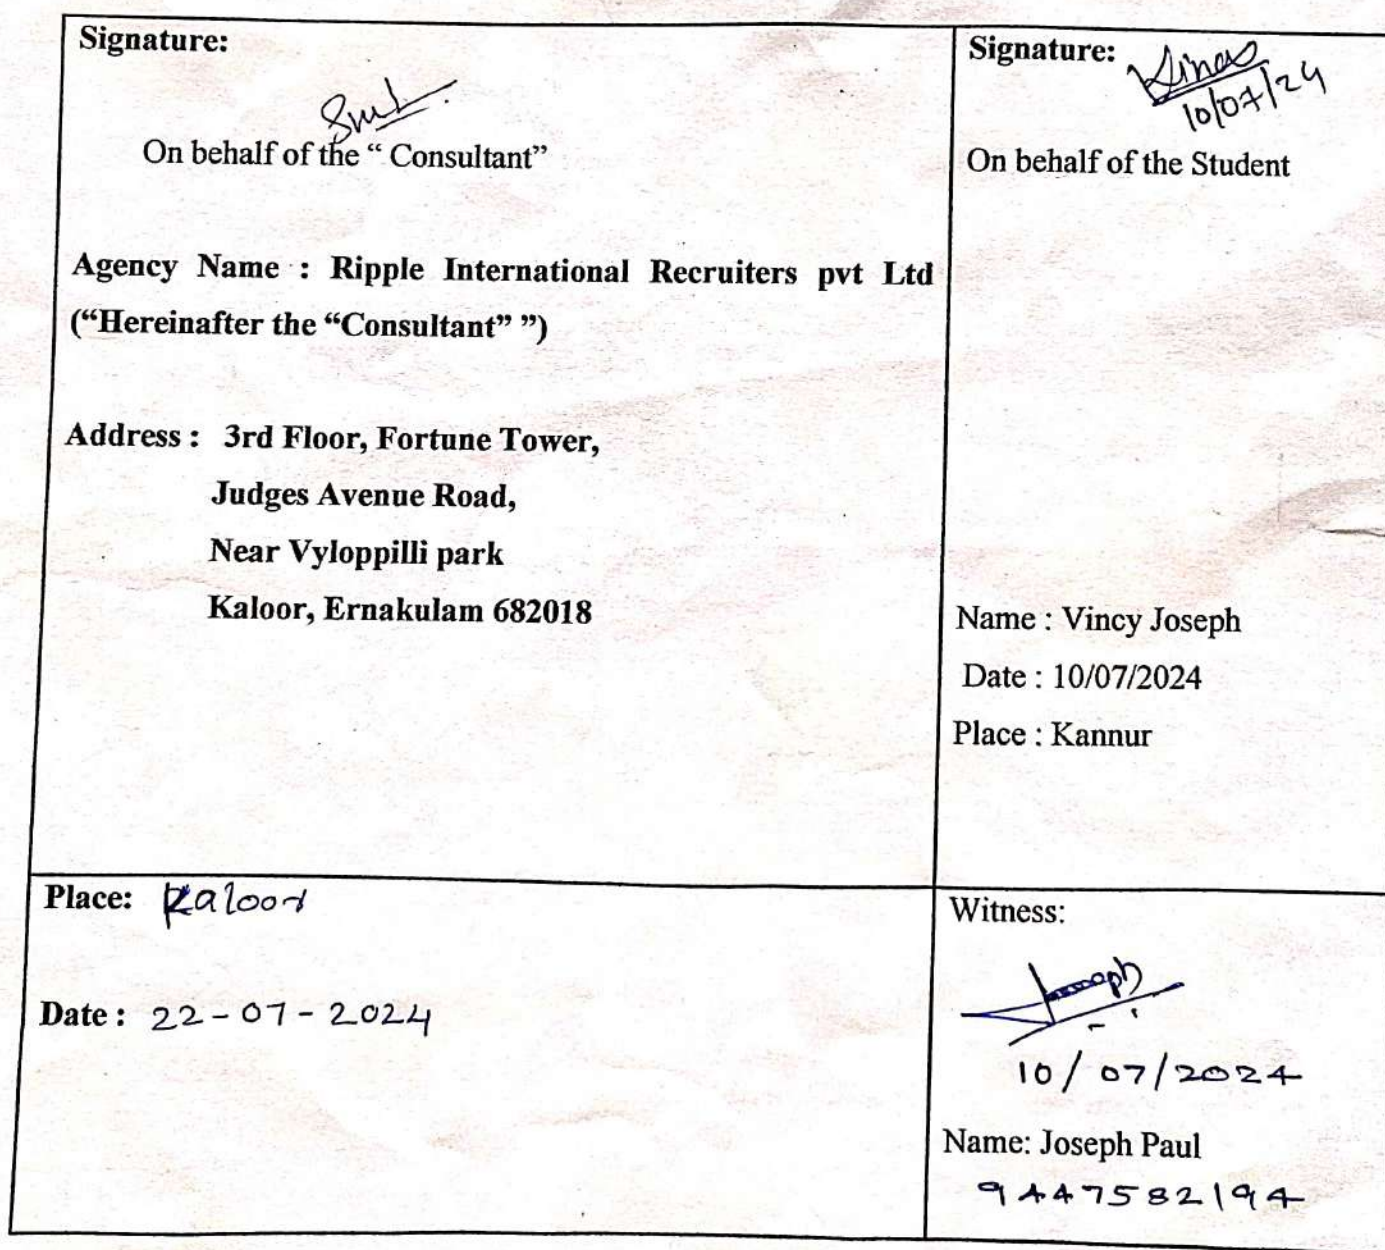 Signature:
On behalf of the “ Consultant”
Agency Name : Ripple International Recruiters pvt Ltd
(“Hereinafter the “Consultant” ”)
Address : 3rd Floor, Fortune Tower,
Judges Avenue Road,
Near Vyloppilli park
Kaloor, Ernakulam 682018
Signature:
10/07/24
On behalf of the Student
Name : Vincy Joseph
Date : 10/07/2024
Place : Kannur
Place: Kaloor
Date : 22-07-2024
Witness:
10/07/2024
Name: Joseph Paul
9447582194